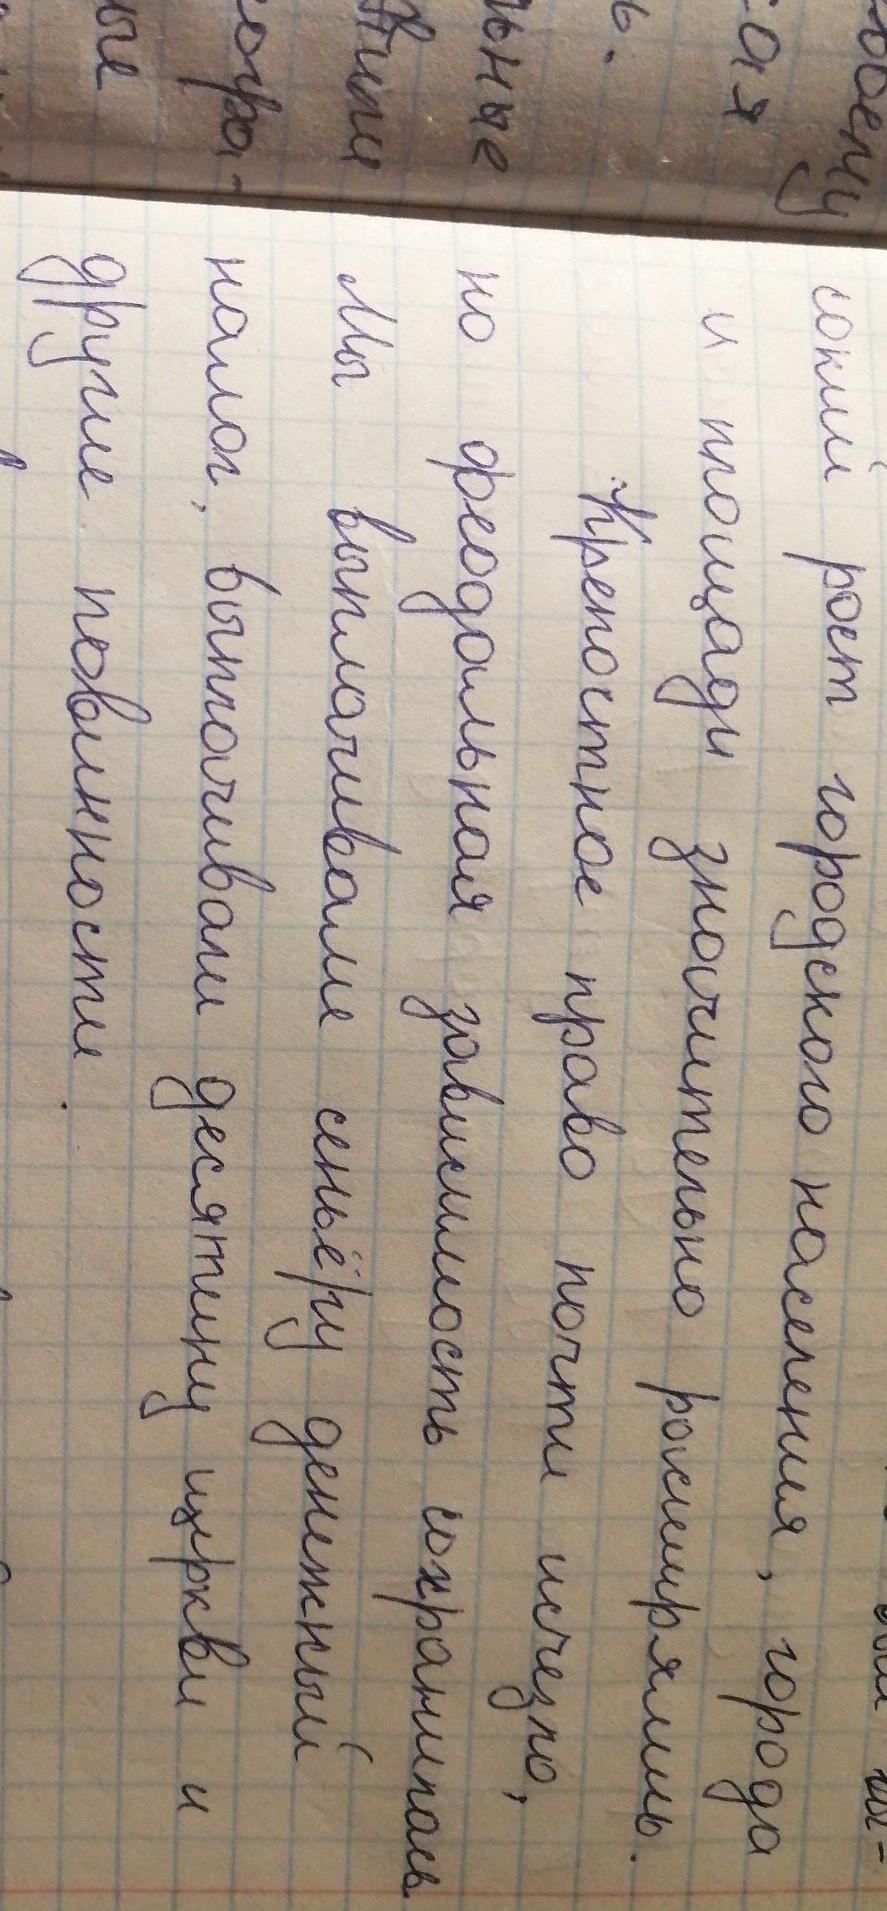 сокий рост городского населения, города
и площади значительно расширялись.
Крепостное право почти исчезло,
но феодальная зависимость сохранилась
Мы выплачивали сеньёру денежный
налог, выплачивали десятину церкви и
другие повинности.